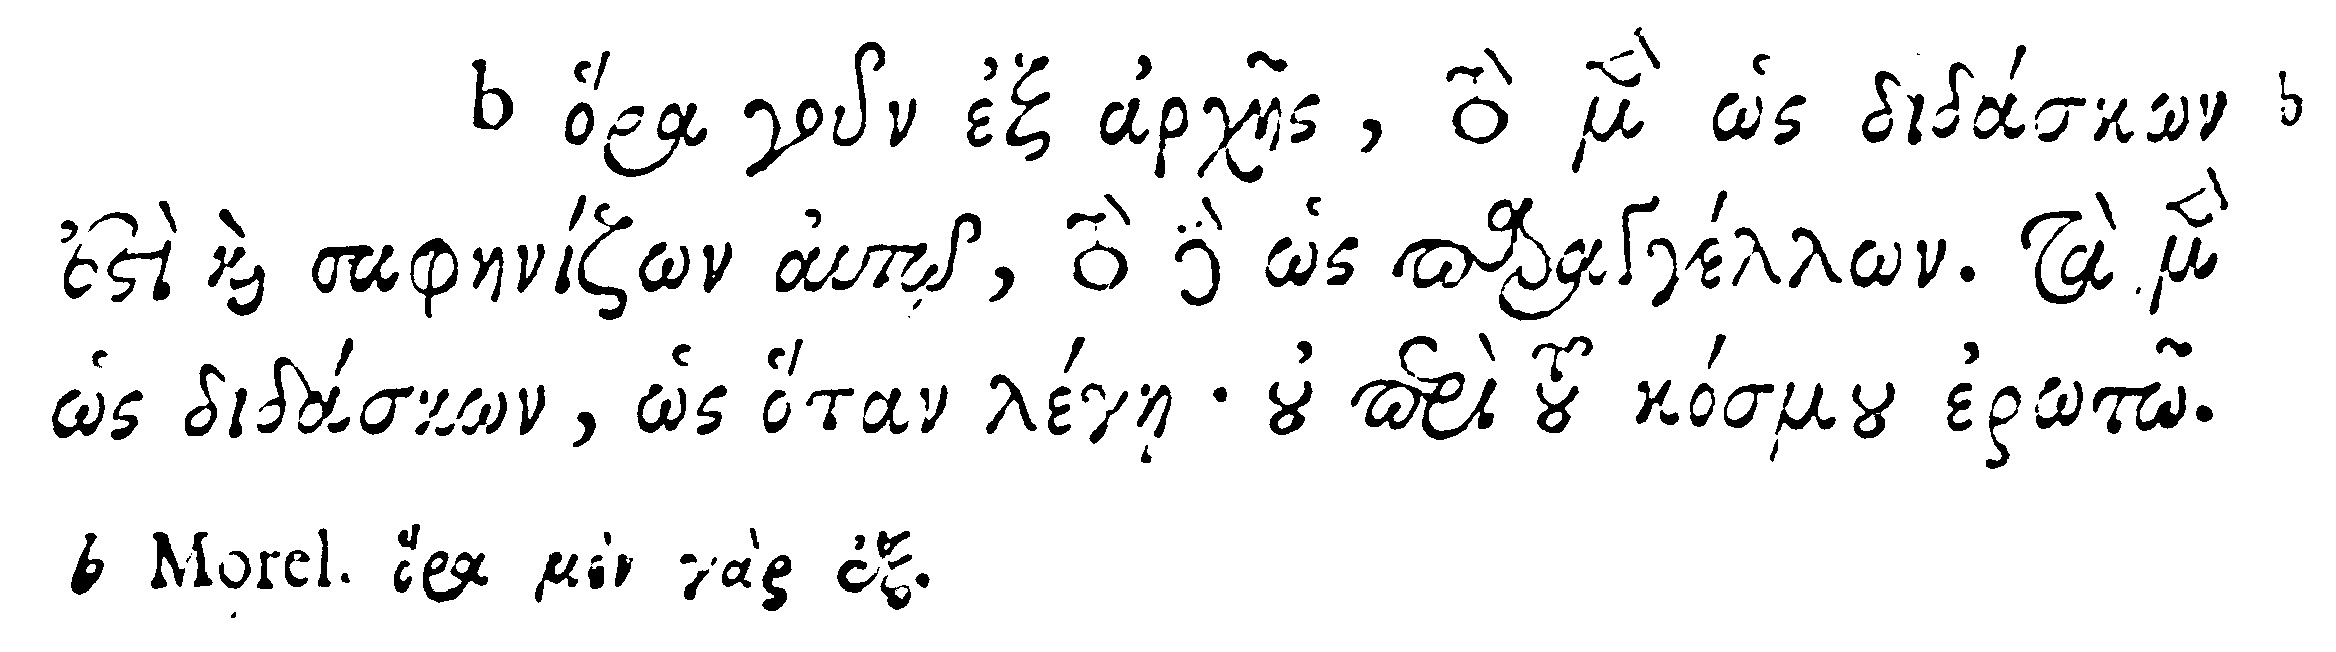 b ὅρα γοῦν ἐξ ἀρχῆς, ὃ μὲν ὡς διδάσκων b
ἐστὶ καὶ σαφηνίζων αὐτῷ, ὃ δὲ ὡς παραγγέλλων. Τὰ μὲν
ὡς διδάσκων, ὡς ὅταν λέγῃ· οὐ περὶ τοῦ κόσμου ἐρωτῶ.
b Morel. ὅρα μὲν γὰρ ἐξ.